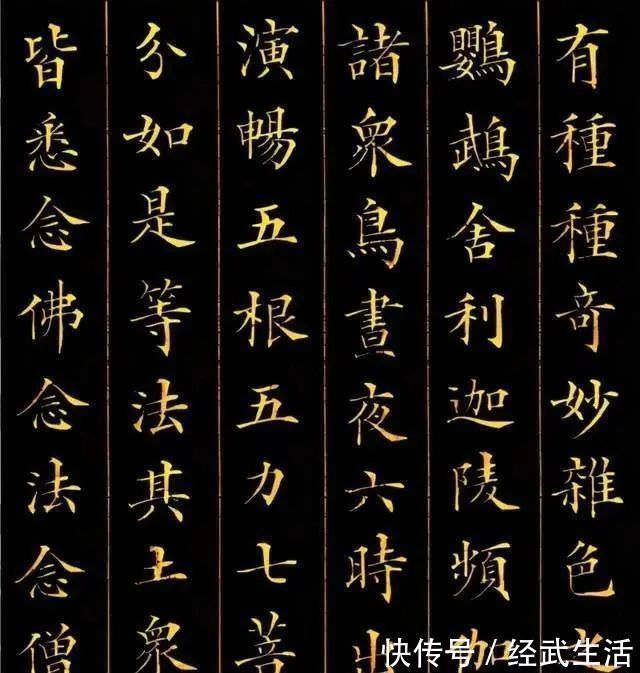 有種種奇妙雜色之
鸚鵡舍利迦陵頻伽
諸衆鳥晝夜六時出
演暢五根五力七菩
分如是等法其土衆
皆悉念佛念法念僧
快传号/经武生活